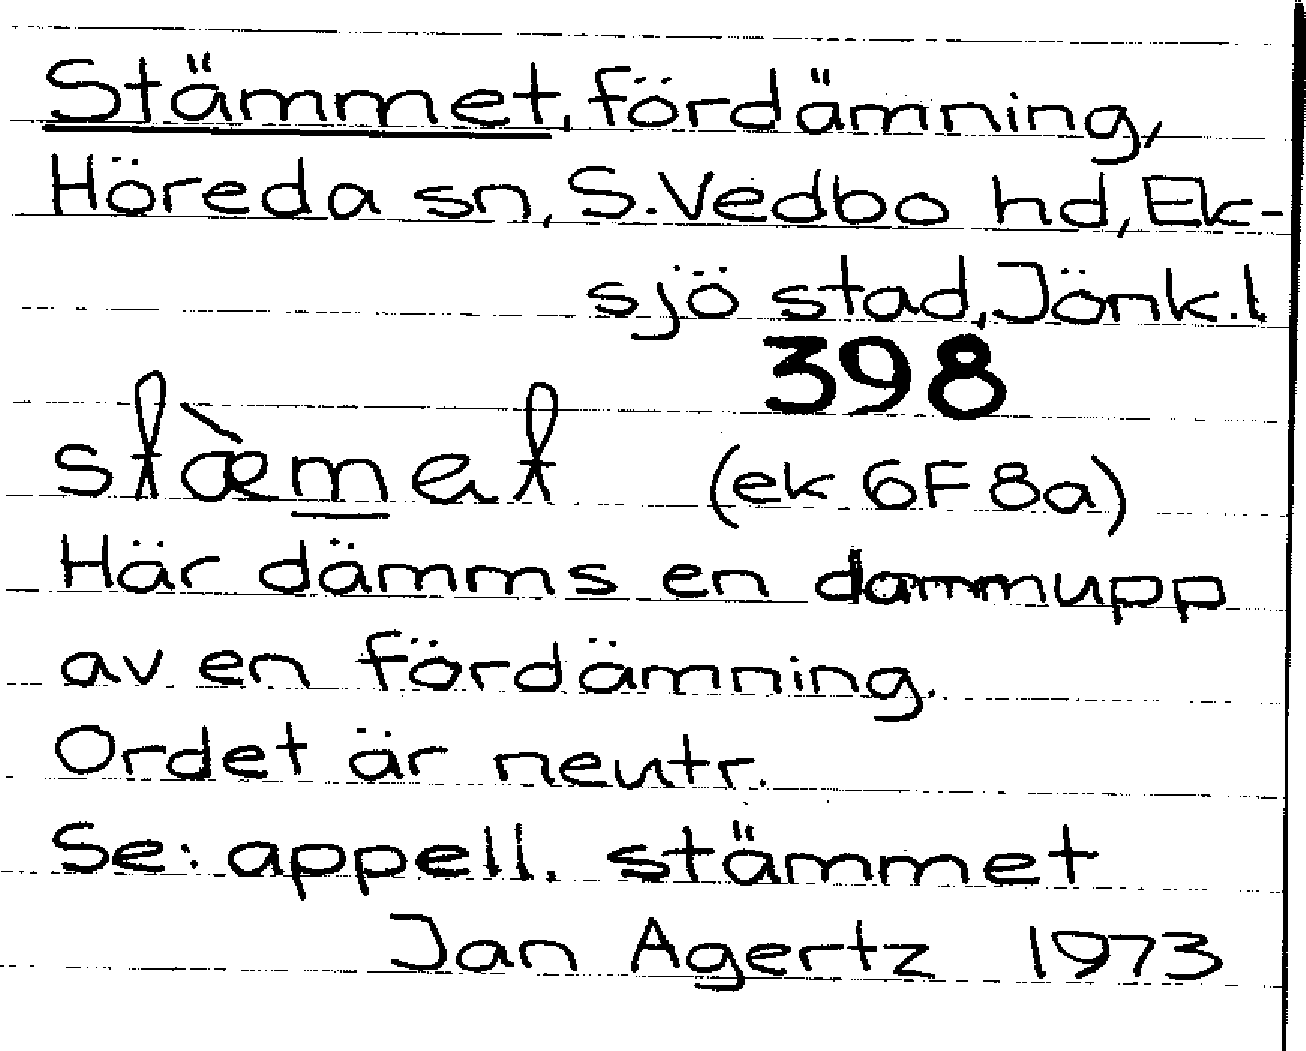 Stämmet, fördämning,
Höreda sn, S. Vedbo hd, Ek-
sjö stad, Jönk.l
398
stæ̀met (ek 6F8a)
Här dämms en damm upp
av en fördämning.
Ordet är neutr.
Se: appell. stämmet
Jan Agertz 1973